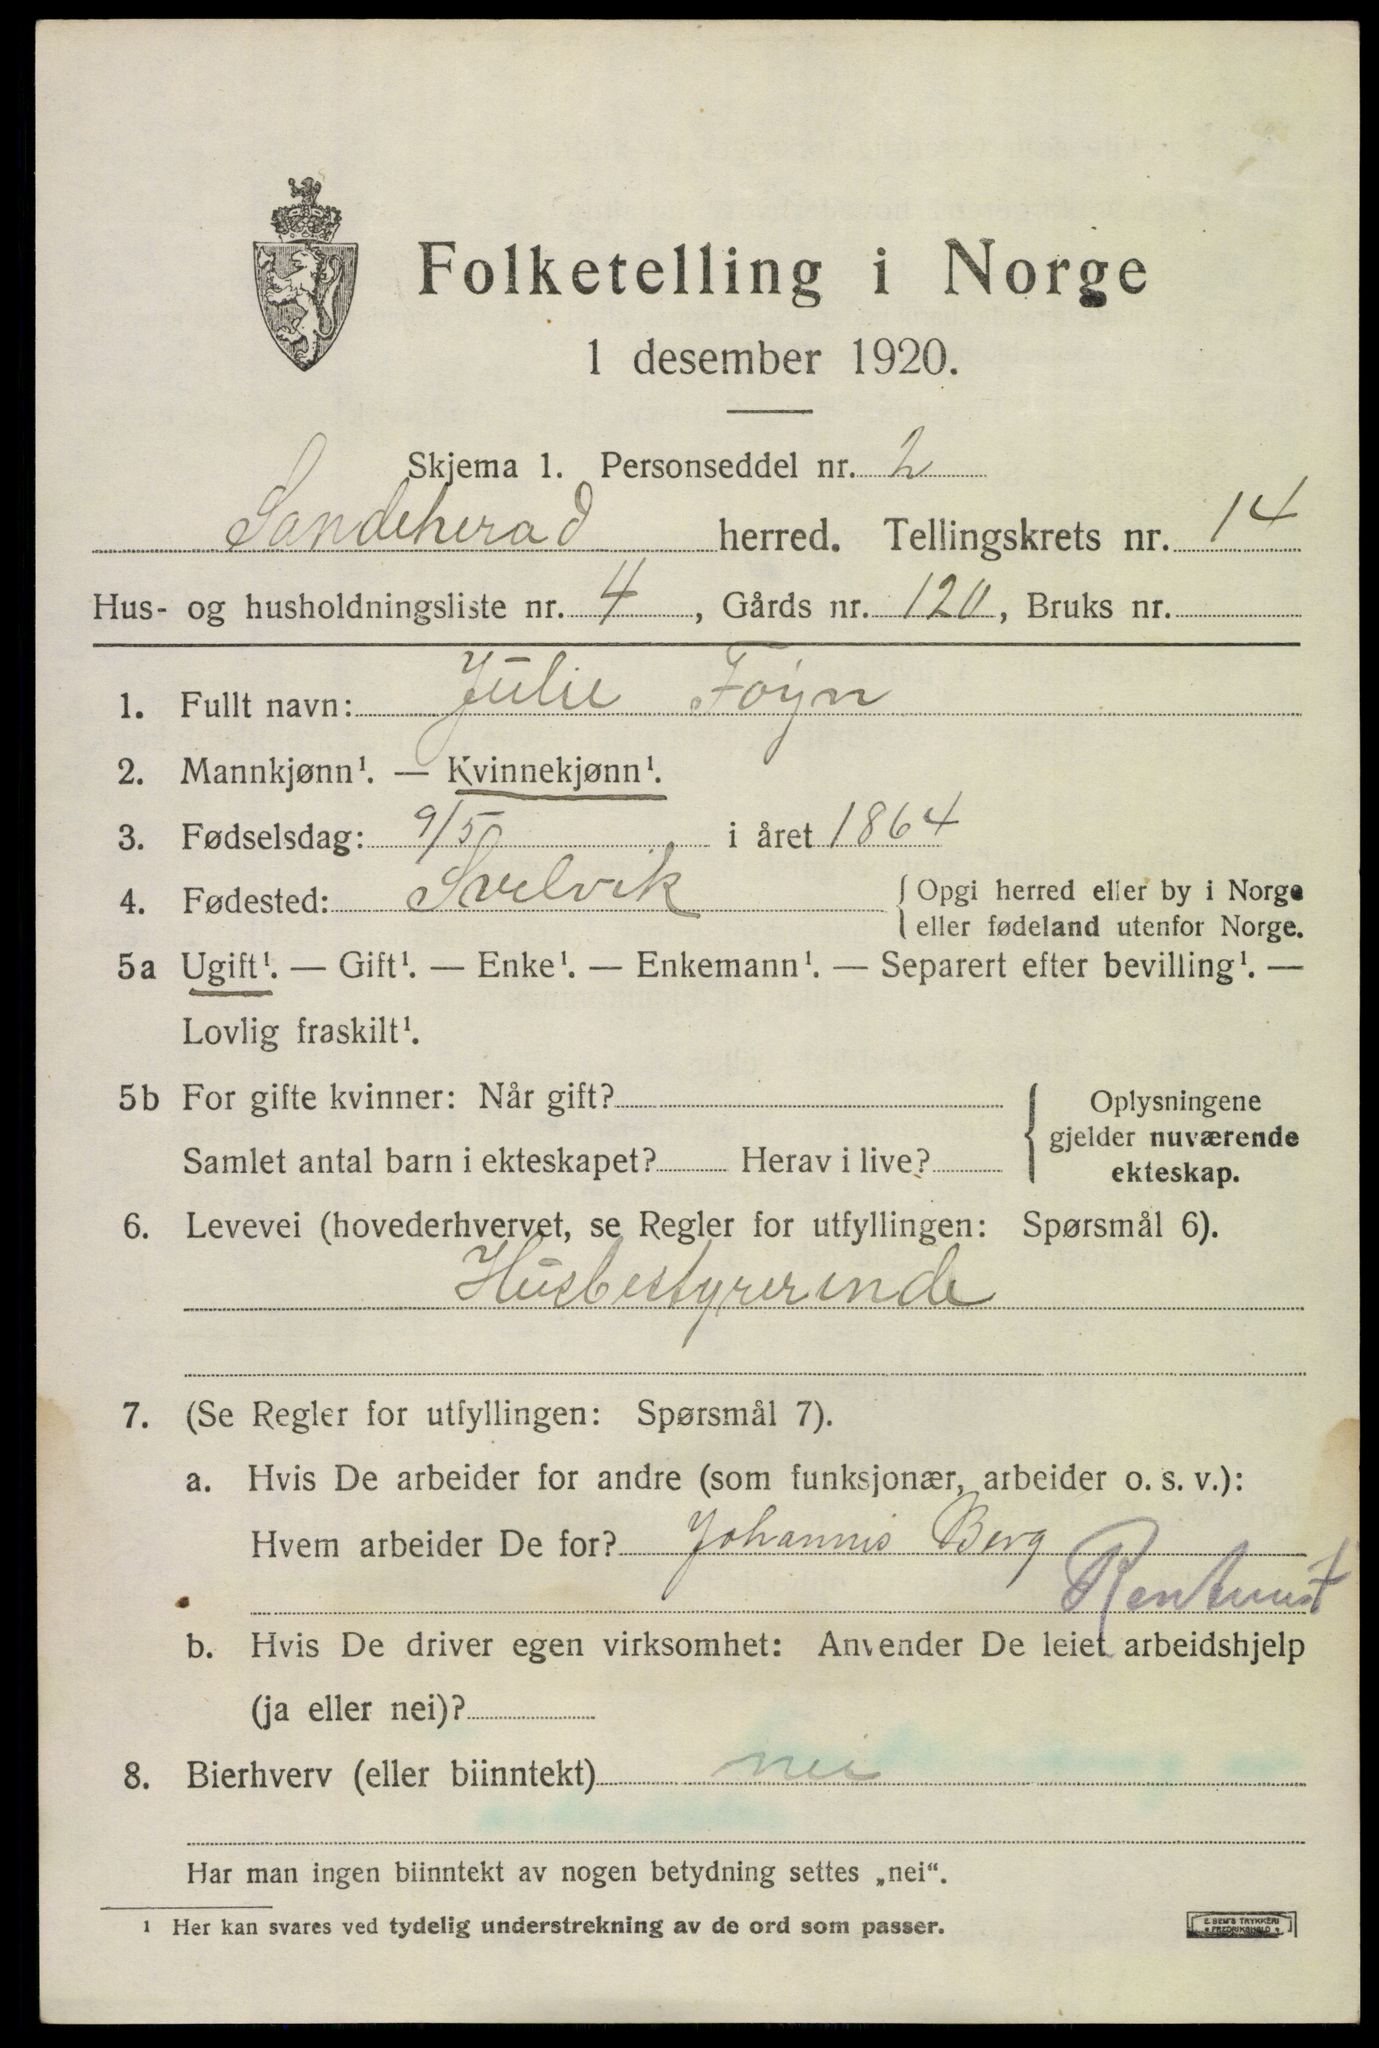 Folketelling i Norge
1 desember 1920.
Skjema 1. Personseddel nr. 2
Sandeherad herred. Tellingskrets nr. 14
Hus- og husholdningsliste nr. 4, Gårds nr. 120, Bruks nr.
1. Fullt navn: Julie Foyn
2. Mannkjønn¹. — Kvinnekjønn¹.
3. Fødselsdag: 9/5 i året 1864
4. Fødested: Svelvik { Opgi herred eller by i Norge
eller fødeland utenfor Norge.
5a Ugift¹. — Gift¹. — Enke¹. — Enkemann¹. — Separert efter bevilling¹. —
Lovlig fraskilt¹.
5b For gifte kvinner: Når gift?
Samlet antal barn i ekteskapet? Herav i live?
Oplysningene
gjelder nuværende
ekteskap.
6. Levevei (hovederhvervet, se Regler for utfyllingen: Spørsmål 6).
Husbestyrerinde
7. (Se Regler for utfyllingen: Spørsmål 7).
a. Hvis De arbeider for andre (som funksjonær, arbeider o. s. v.):
Hvem arbeider De for? Johannes Berg
b. Hvis De driver egen virksomhet: Anvender De leiet arbeidshjelp
(ja eller nei)?
8. Bierhverv (eller biinntekt) nei
Har man ingen biinntekt av nogen betydning settes „nei“.
¹ Her kan svares ved tydelig understrekning av de ord som passer.
E. SEM'S TRYKKERI
FREDRIKSHALD